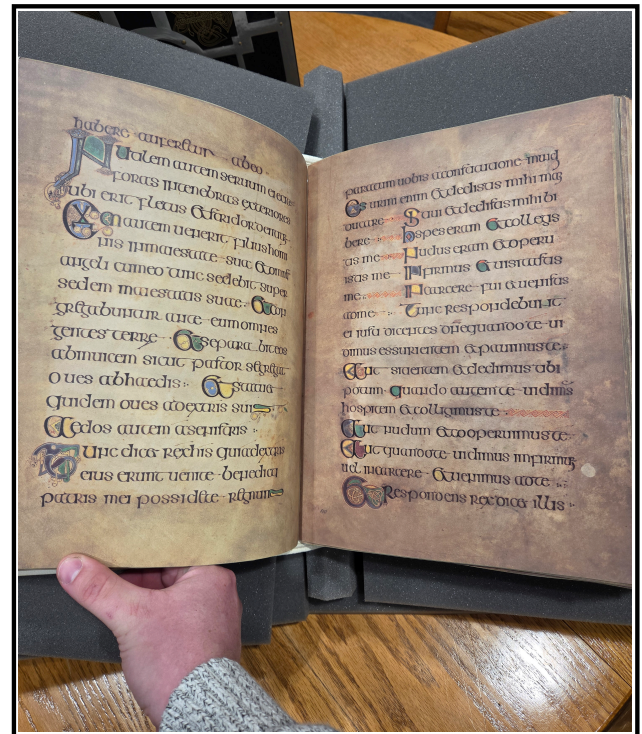 habere auferetur abeo
Nualem autem seruum eicere
foras intenebras exteriores
ubi erit fletus & stridor dentiu
Cum autem uenerit filius homi
nis inmaiestate sua & omnes
angeli cumeo tunc sedebit super
sedem maiestatis suae & con
gregabuntur ante eum omnes
gentes terre & separabit eos
abinuicem sicut pastor segregat
oues abhaedis & statuet
quidem oues adextris suis
haedos autem asenistris
Tunc dicet rex his quiadextris
eius erunt uenite benedicti
patris mei possidete regnum
paratum uobis aconstitutione mund
Esuriui enim & dedistis mihi man
ducare Sitiui & dedistis mihi bi
bere hospes eram & collegis
tis me Nudus eram & operu
istis me Infirmus & uisitastis
me Incarcere fui & uenistis
adme Tunc respondebunt
ei iusti dicentes dnequando te ui
dimus essurientem & pauimus te
aut sitientem & dedimus tibi
potum quando autem te uidimus
hospitem & collegimus te
aut nudum & cooperuimus te
aut quando te uidimus infirmum
uel incarcere & uenimus adte
& Respondens rex dicet illis